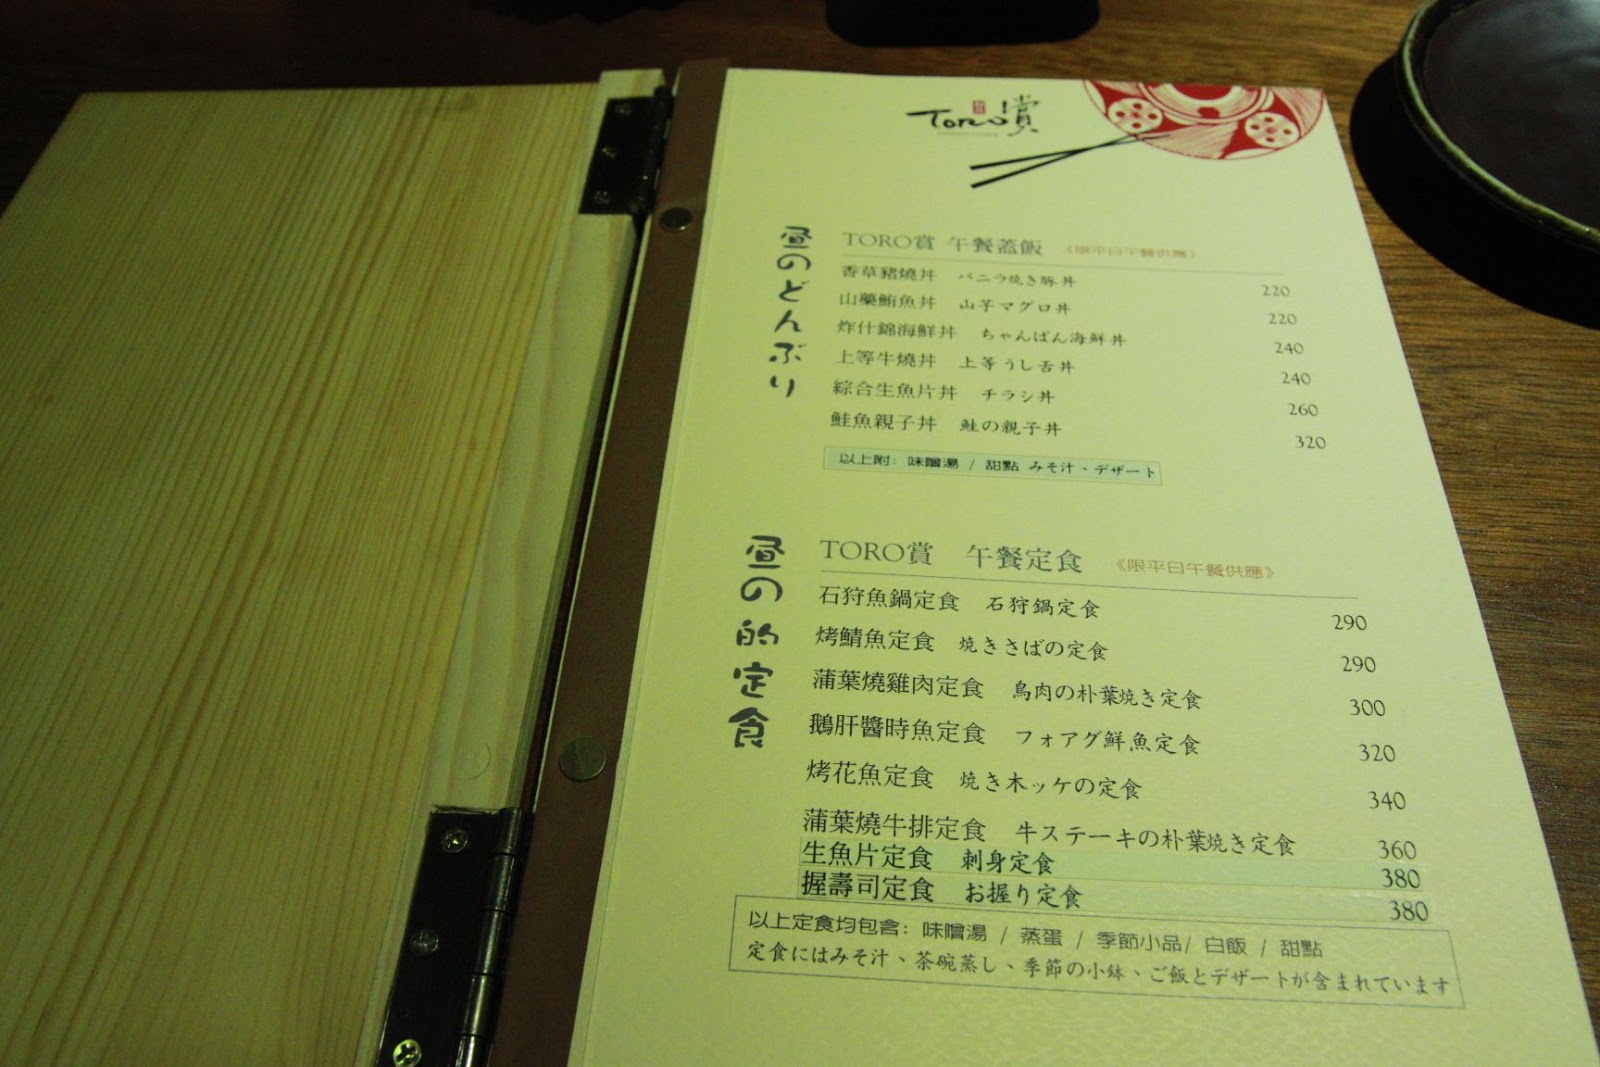 Toro賞
昼のどんぶり
TORO賞 午餐蓋飯 《限平日午餐供應》
香草豬燒丼 バニラ焼き豚丼 220
山藥鮪魚丼 山芋マグロ丼 220
炸什錦海鮮丼 ちゃんぱん海鮮丼 240
上等牛燒丼 上等うし舌丼 240
綜合生魚片丼 チラシ丼 260
鮭魚親子丼 鮭の親子丼 320
以上附: 味噌湯 / 甜點 みそ汁、デザート
昼の的定食
TORO賞 午餐定食 《限平日午餐供應》
石狩魚鍋定食 石狩鍋定食 290
烤鯖魚定食 焼きさばの定食 290
蒲葉燒雞肉定食 鳥肉の朴葉焼き定食 300
鵝肝醬時魚定食 フォアグ鮮魚定食 320
烤花魚定食 焼き木ッケの定食 340
蒲葉燒牛排定食 牛ステーキの朴葉焼き定食 360
生魚片定食 刺身定食 380
握壽司定食 お握り定食 380
以上定食均包含: 味噌湯 / 蒸蛋 / 季節小品/ 白飯 / 甜點
定食にはみそ汁、茶碗蒸し、季節の小鉢、ご飯とデザートが含まれています